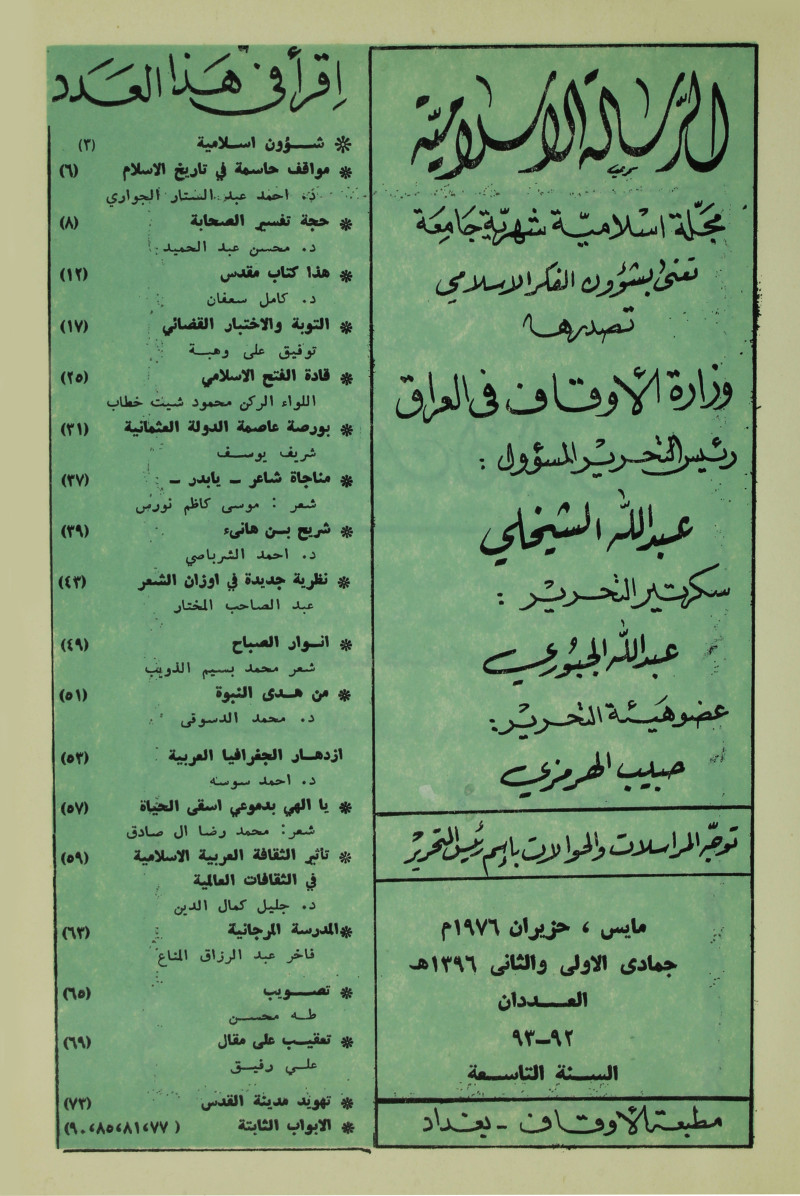 الرسالة الإسلامية
مجلة اسلامية شهرية جامعة
تعنى بشؤون الفكر الاسلامي
تصدرها
وزارة الأوقاف في العراق
رئيس التحرير المسؤول :
عبدالله الشيخلي
سكرتير التحرير :
عبدالله الجبوري
عضو هيئة التحرير :
حبيب الهرمزي
توجه المراسلات والحوالات باسم رئيس التحرير
مايس ، حزيران ١٩٧٦م
جمادى الاولى والثانى ١٣٩٦هـ
العــددان
٩٢–٩٣
السـنة التاسـعة
مطبعة الأوقاف - بغداد
اقرأ في هذا العدد
* شـــؤون اسـلامية (٣)
* مواقف حاسمة في تاريخ الاسلام (٦)
د. احمد عبد الستار الجواري
* حجة تفسير الصحابة (٨)
د. محسن عبد الحميد
* هذا كتاب مقدس (١٢)
د. كامل سعفان
* التوبة والاختبار القضائي (١٧)
توفيق على وهبـة
* قادة الفتح الاسلامي (٢٥)
اللواء الركن محمود شيت خطاب
* بورصة عاصمة الدولة العثمانية (٣١)
شريف يوسـف
* مناجاة شاعر ـ يابدر ـ (٣٧)
شعر : موسى كاظم نورس
* شريح بـن هانىء (٣٩)
د. احمد الشرباصي
* نظرية جديدة في اوزان الشعر (٤٣)
عبد الصاحب المختار
* انـوار الصباح (٤٩)
شعر محمد بسيم الذويب
* من هـدى النبوة (٥١)
د. محمد الدسوقى
ازدهـار الجغرافيا العربية (٥٣)
د. احمد سوسه
* يا الهي بدموعي اسقى الحياة (٥٧)
شعر: محمد رضا ال صادق
* تاثير الثقافة العربية الاسلامية (٥٩)
في الثقافات العالمية
د. جليل كمال الدين
*المدرسة المرجانية (٦٣)
فاخر عبد الرزاق المناع
* تصـــويب (٦٥)
طـه محسـن
* تعقيـب على مقال (٦٩)
علـي رفيـق
* تهويد مدينة القدس (٧٣)
* الابواب الثابتة (٧٧،٨١،٨٥،٩٠)